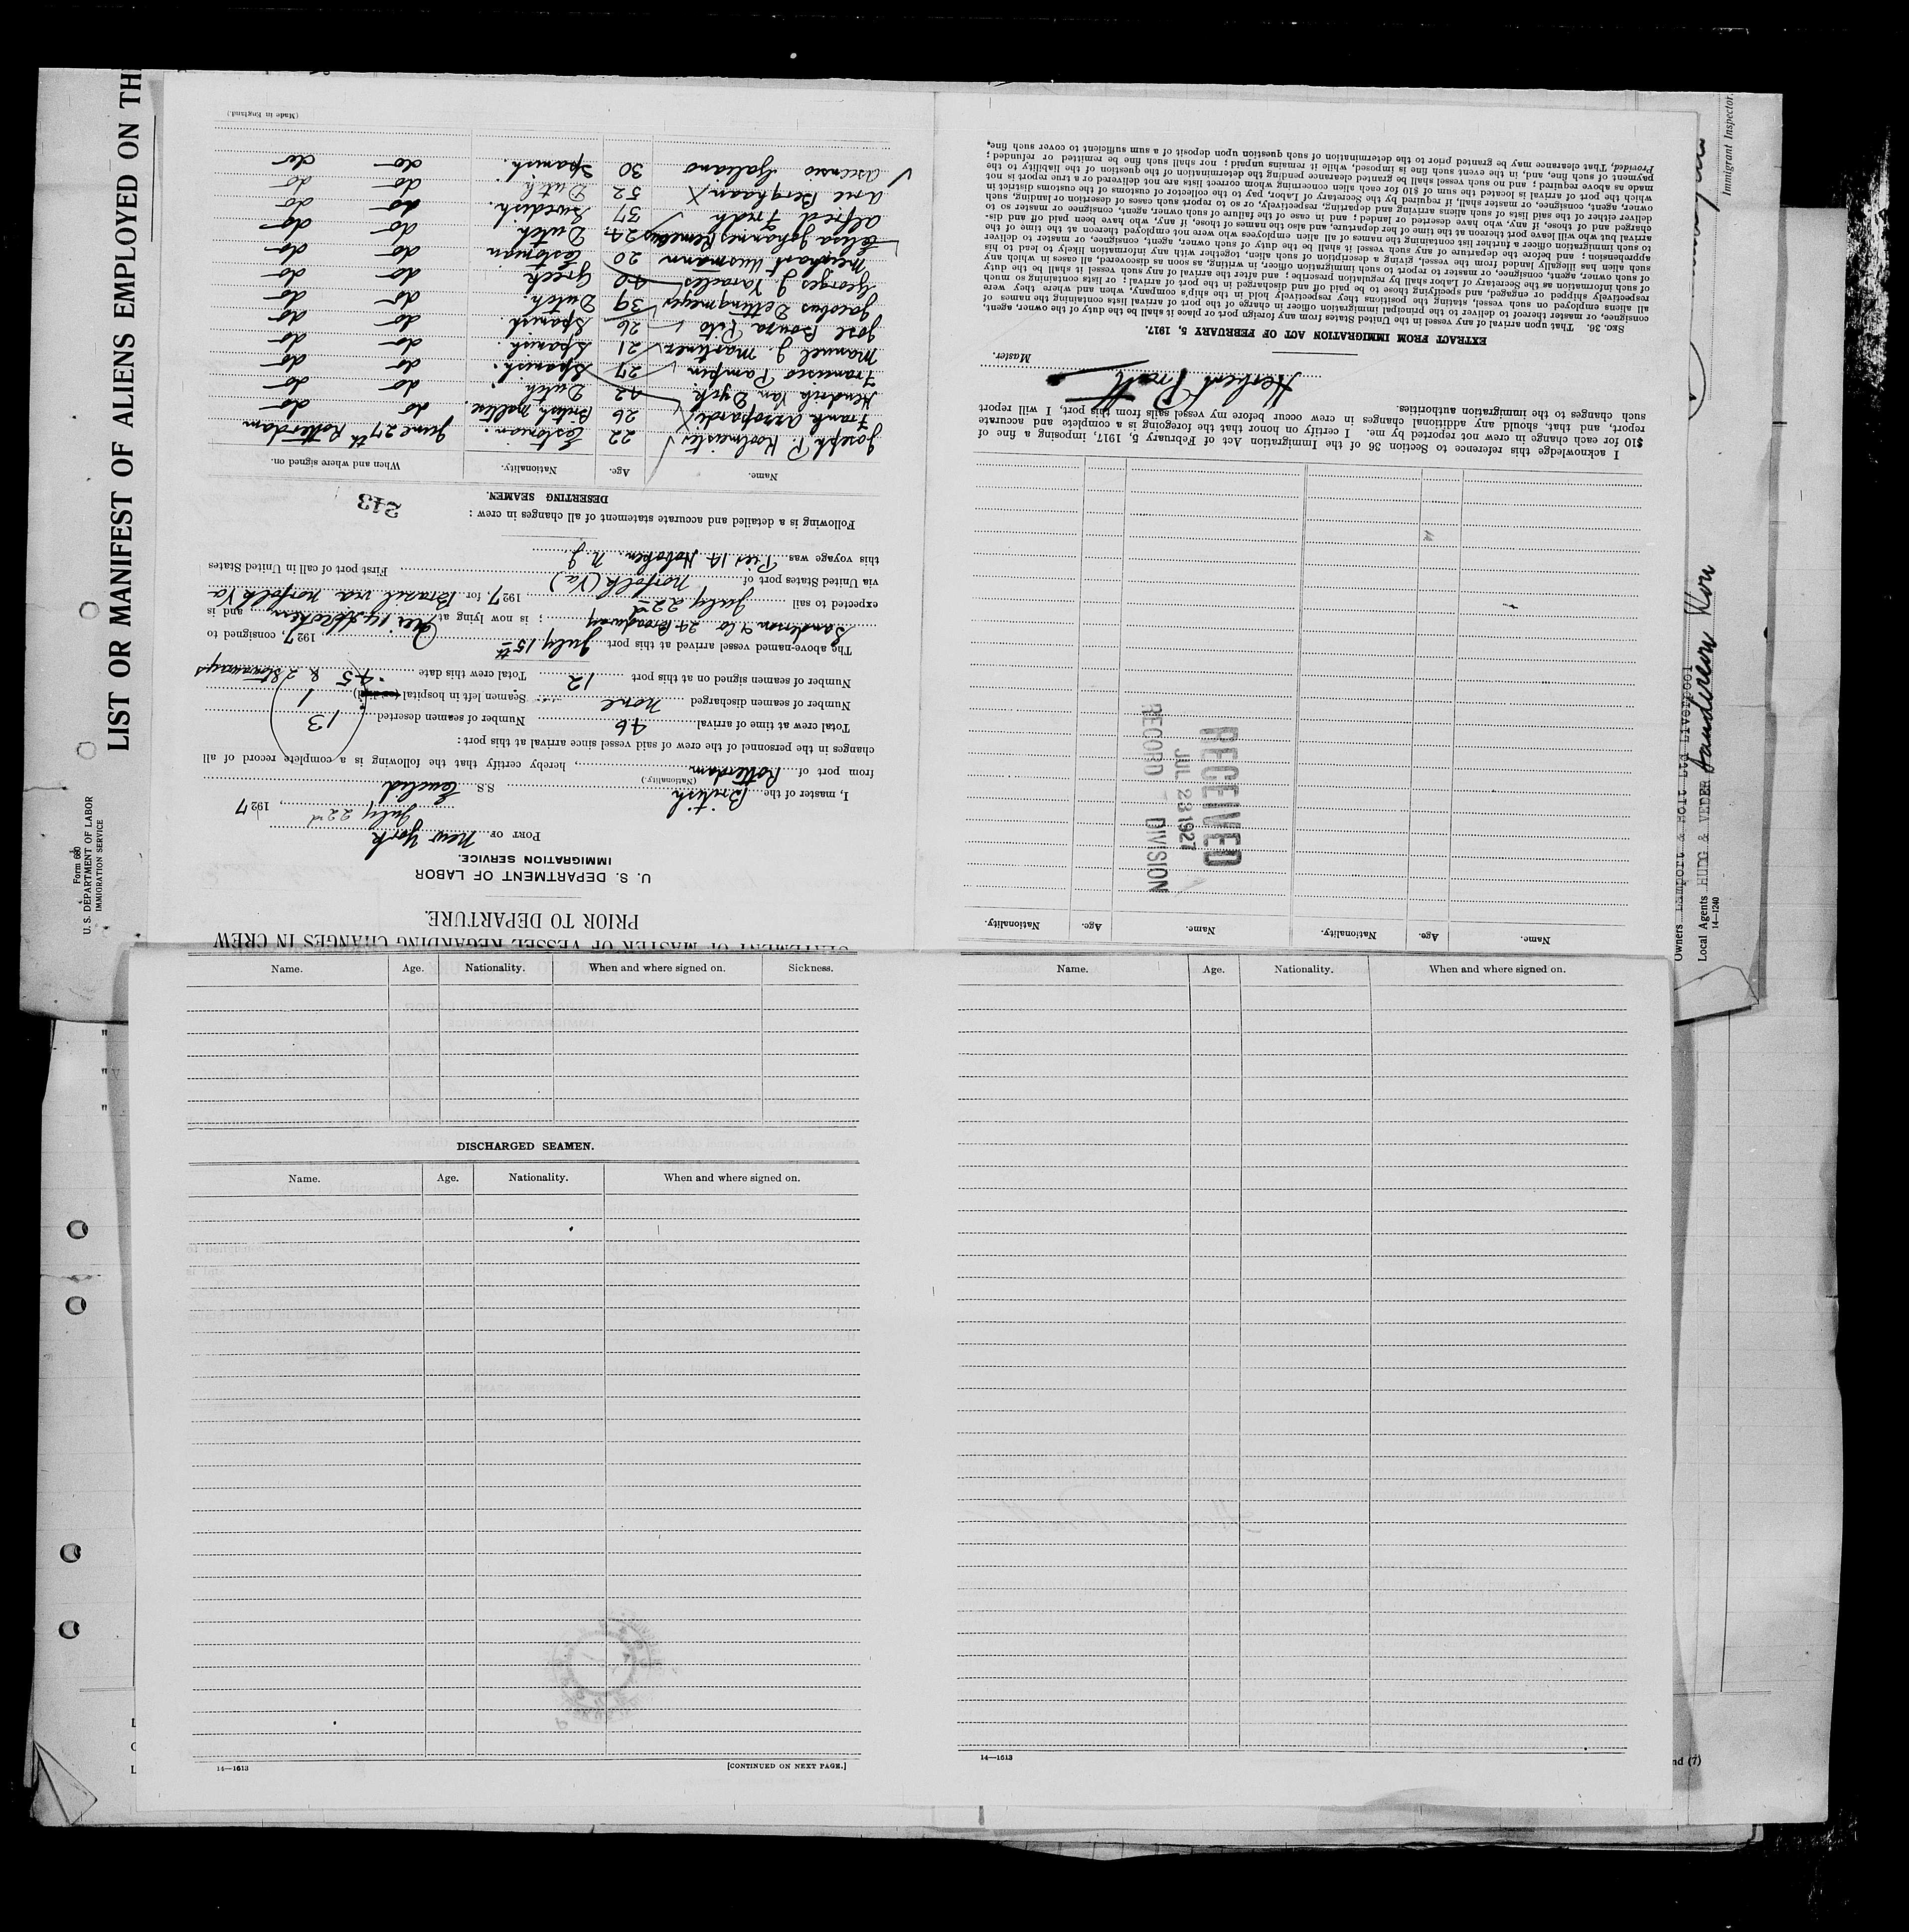 LIST OR MANIFEST OF ALIENS EMPLOYED ON TH
Form 680
U. S. DEPARTMENT OF LABOR
IMMIGRATION SERVICE
STATEMENT OF MASTER OF VESSEL REGARDING CHANGES IN CREW
PRIOR TO DEPARTURE.
U. S. DEPARTMENT OF LABOR
IMMIGRATION SERVICE.
PORT OF New York
July 22nd, 1927
I, master of the British S.S. Euclid
(Nationality.)
from port of Rotterdam, hereby certify that the following is a complete record of all
changes in the personnel of the crew of said vessel since arrival at this port:
Total crew at time of arrival 46 Number of seamen deserted 13
Number of seamen discharged none Seamen left in hospital 1
Number of seamen signed on at this port 12 Total crew this date 45 & 2 Stowaways
The above-named vessel arrived at this port July 15th 1927, consigned to
Sanderson & Co 24 Broadway; is now lying at Pier 14 Hoboken and is
expected to sail July 22nd 1927, for Brazil via Norfolk Va
via United States port of Norfolk (Va) First port of call in United States
this voyage was Pier 14 Hoboken N.J
Following is a detailed and accurate statement of all changes in crew:
DESERTING SEAMEN.
213
Name. Age. Nationality. When and where signed on.
Joseph P. Koolmeister 22 Estonian. June 27th Rotterdam
Frank Azzopardi X 26 British Maltese. do do
Hendrik Van Dyck 42 Dutch do do
Francisco Pampin 27 Spanish. do do
Manuel J. Martinez 21 Spanish. do do
Jose Bouza Rito 26 Spanish. do do
Jacobus Dettingmeyer 39 Dutch. do do
Georges J Varacles 40 Greek do do
Meinhart Uusmann 20 Estonian do do
Johannes Remeeus 24 Dutch do do
Alfred Fredh 37 Swedish. do do
Arie Berghaan X 52 Dutch do do
Ascensio Galiano 30 Spanish. do do
(Made in England.)
Name. Age. Nationality. Name. Age. Nationality.
RECEIVED
JUL 23 1927
RECORD DIVISION
I acknowledge this reference to Section 36 of the Immigration Act of February 5, 1917, imposing a fine of
$10 for each change in crew not reported by me. I certify on honor that the foregoing is a complete and accurate
report, and that, should any additional changes in crew occur before my vessel sails from this port, I will report
such changes to the immigration authorities.
Herbert Pratt
Master.
EXTRACT FROM IMMIGRATION ACT OF FEBRUARY 5, 1917.
SEC. 36. That upon arrival of any vessel in the United States from any foreign port or place it shall be the duty of the owner, agent,
consignee, or master thereof to deliver to the principal immigration officer in charge of the port of arrival lists containing the names of
all aliens employed on such vessel, stating the positions they respectively hold in the ship's company, when and where they were
respectively shipped or engaged, and specifying those to be paid off and discharged in the port of arrival; or lists containing so much
of such information as the Secretary of Labor shall by regulation prescribe; and after the arrival of any such vessel it shall be the duty
of such owner, agent, consignee, or master to report to such immigration officer, in writing, as soon as discovered, all cases in which any
such alien has illegally landed from the vessel, giving a description of such alien, together with any information likely to lead to his
apprehension; and before the departure of any such vessel it shall be the duty of such owner, agent, consignee, or master to deliver
to such immigration officer a further list containing the names of all alien employees who were not employed thereon at the time of the
arrival but who will leave port thereon at the time of her departure, and also the names of those, if any, who have been paid off and dis-
charged and of those, if any, who have deserted or landed; and in case of the failure of such owner, agent, consignee or master so to
deliver either of the said lists of such aliens arriving and departing, respectively, or so to report such cases of desertion or landing, such
owner, agent, consignee, or master, shall, if required by the Secretary of Labor, pay to the collector of customs of the customs district in
which the port of arrival is located the sum of $10 for each alien concerning whom correct lists are not delivered or a true report is not
made as above required; and no such vessel shall be granted clearance pending the determination of the question of the liability to the
payment of such fine, and, in the event such fine is imposed, while it remains unpaid; nor shall such fine be remitted or refunded;
Provided, That clearance may be granted prior to the determination of such question upon deposit of a sum sufficient to cover such fine.
Immigrant Inspector.
Owners Lamport & Holt Ltd Liverpool
Local Agents HUDG & VEDER Sanderson & Son
14—1240
Name. Age. Nationality. When and where signed on. Sickness.
DISCHARGED SEAMEN.
Name. Age. Nationality. When and where signed on.
14—1613
[CONTINUED ON NEXT PAGE.]
Name. Age. Nationality. When and where signed on.
14—1613
nd (7)